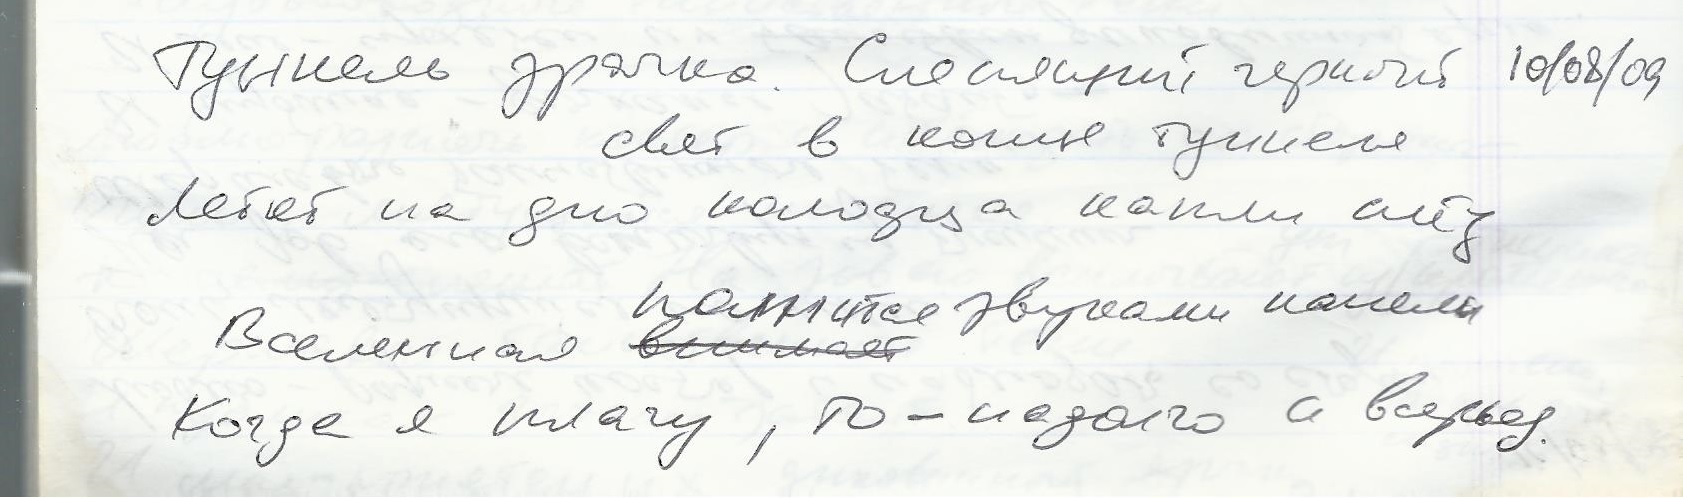 Туннель зрачка. Слепящий черный 10/08/09
свет в конце туннеля
Летят на дно колодца капли слёз
полнится звуками капели
Вселенная внимает
Когда я плачу, то – надолго и всерьез.